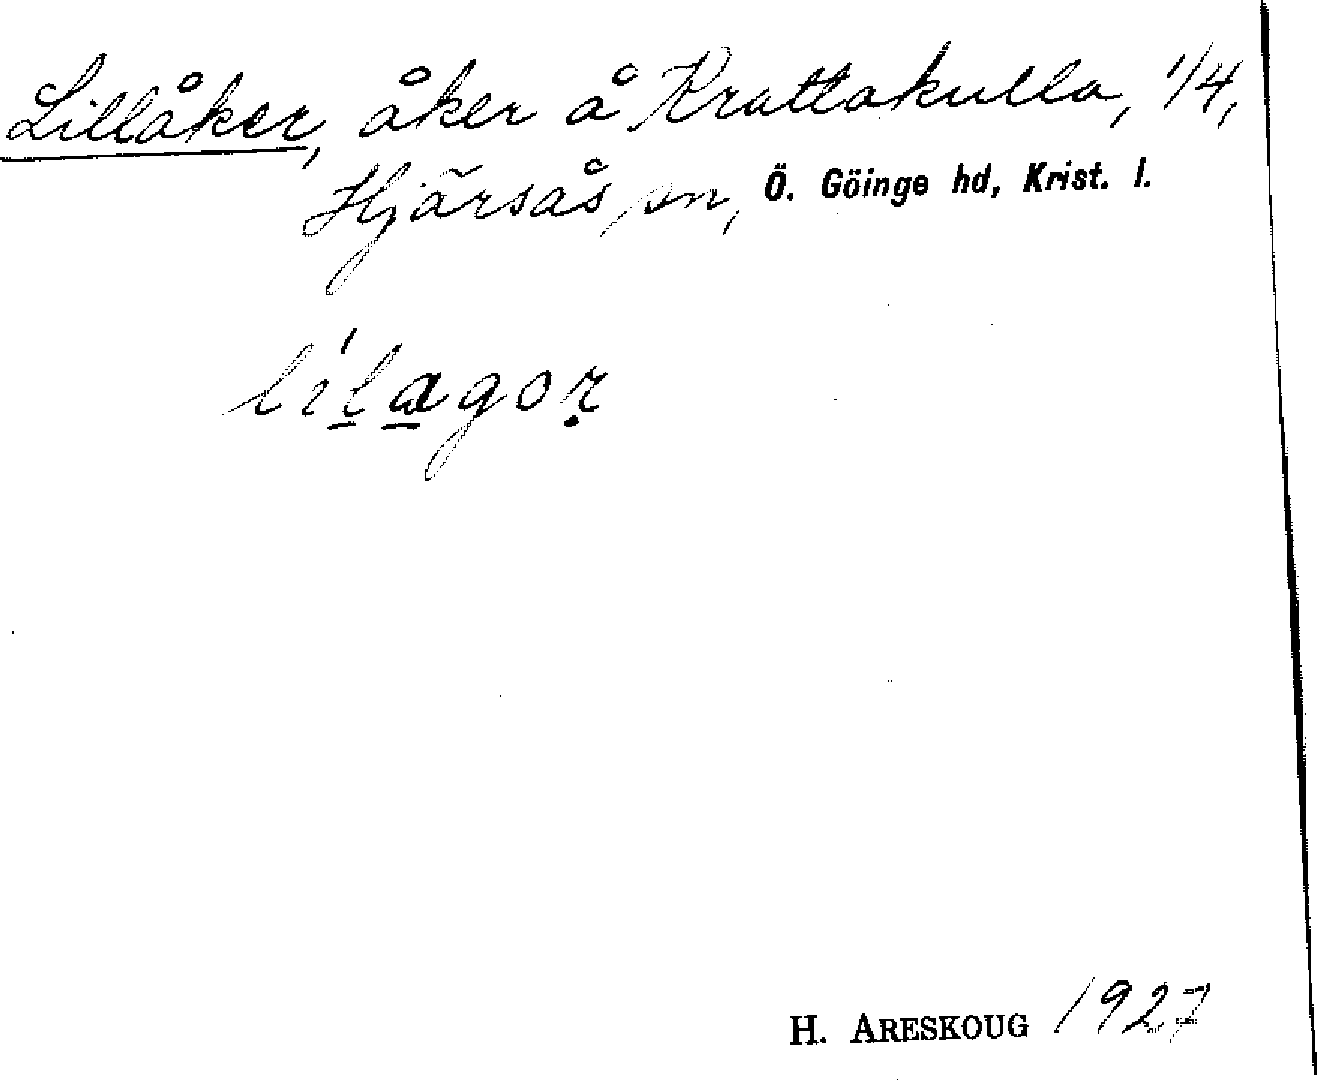 Lillåker, åker å Krattakulla, 1/4,
Hjärsås sn, Ö. Göinge hd, Krist. l.
li'lagor
H. ARESKOUG 1927